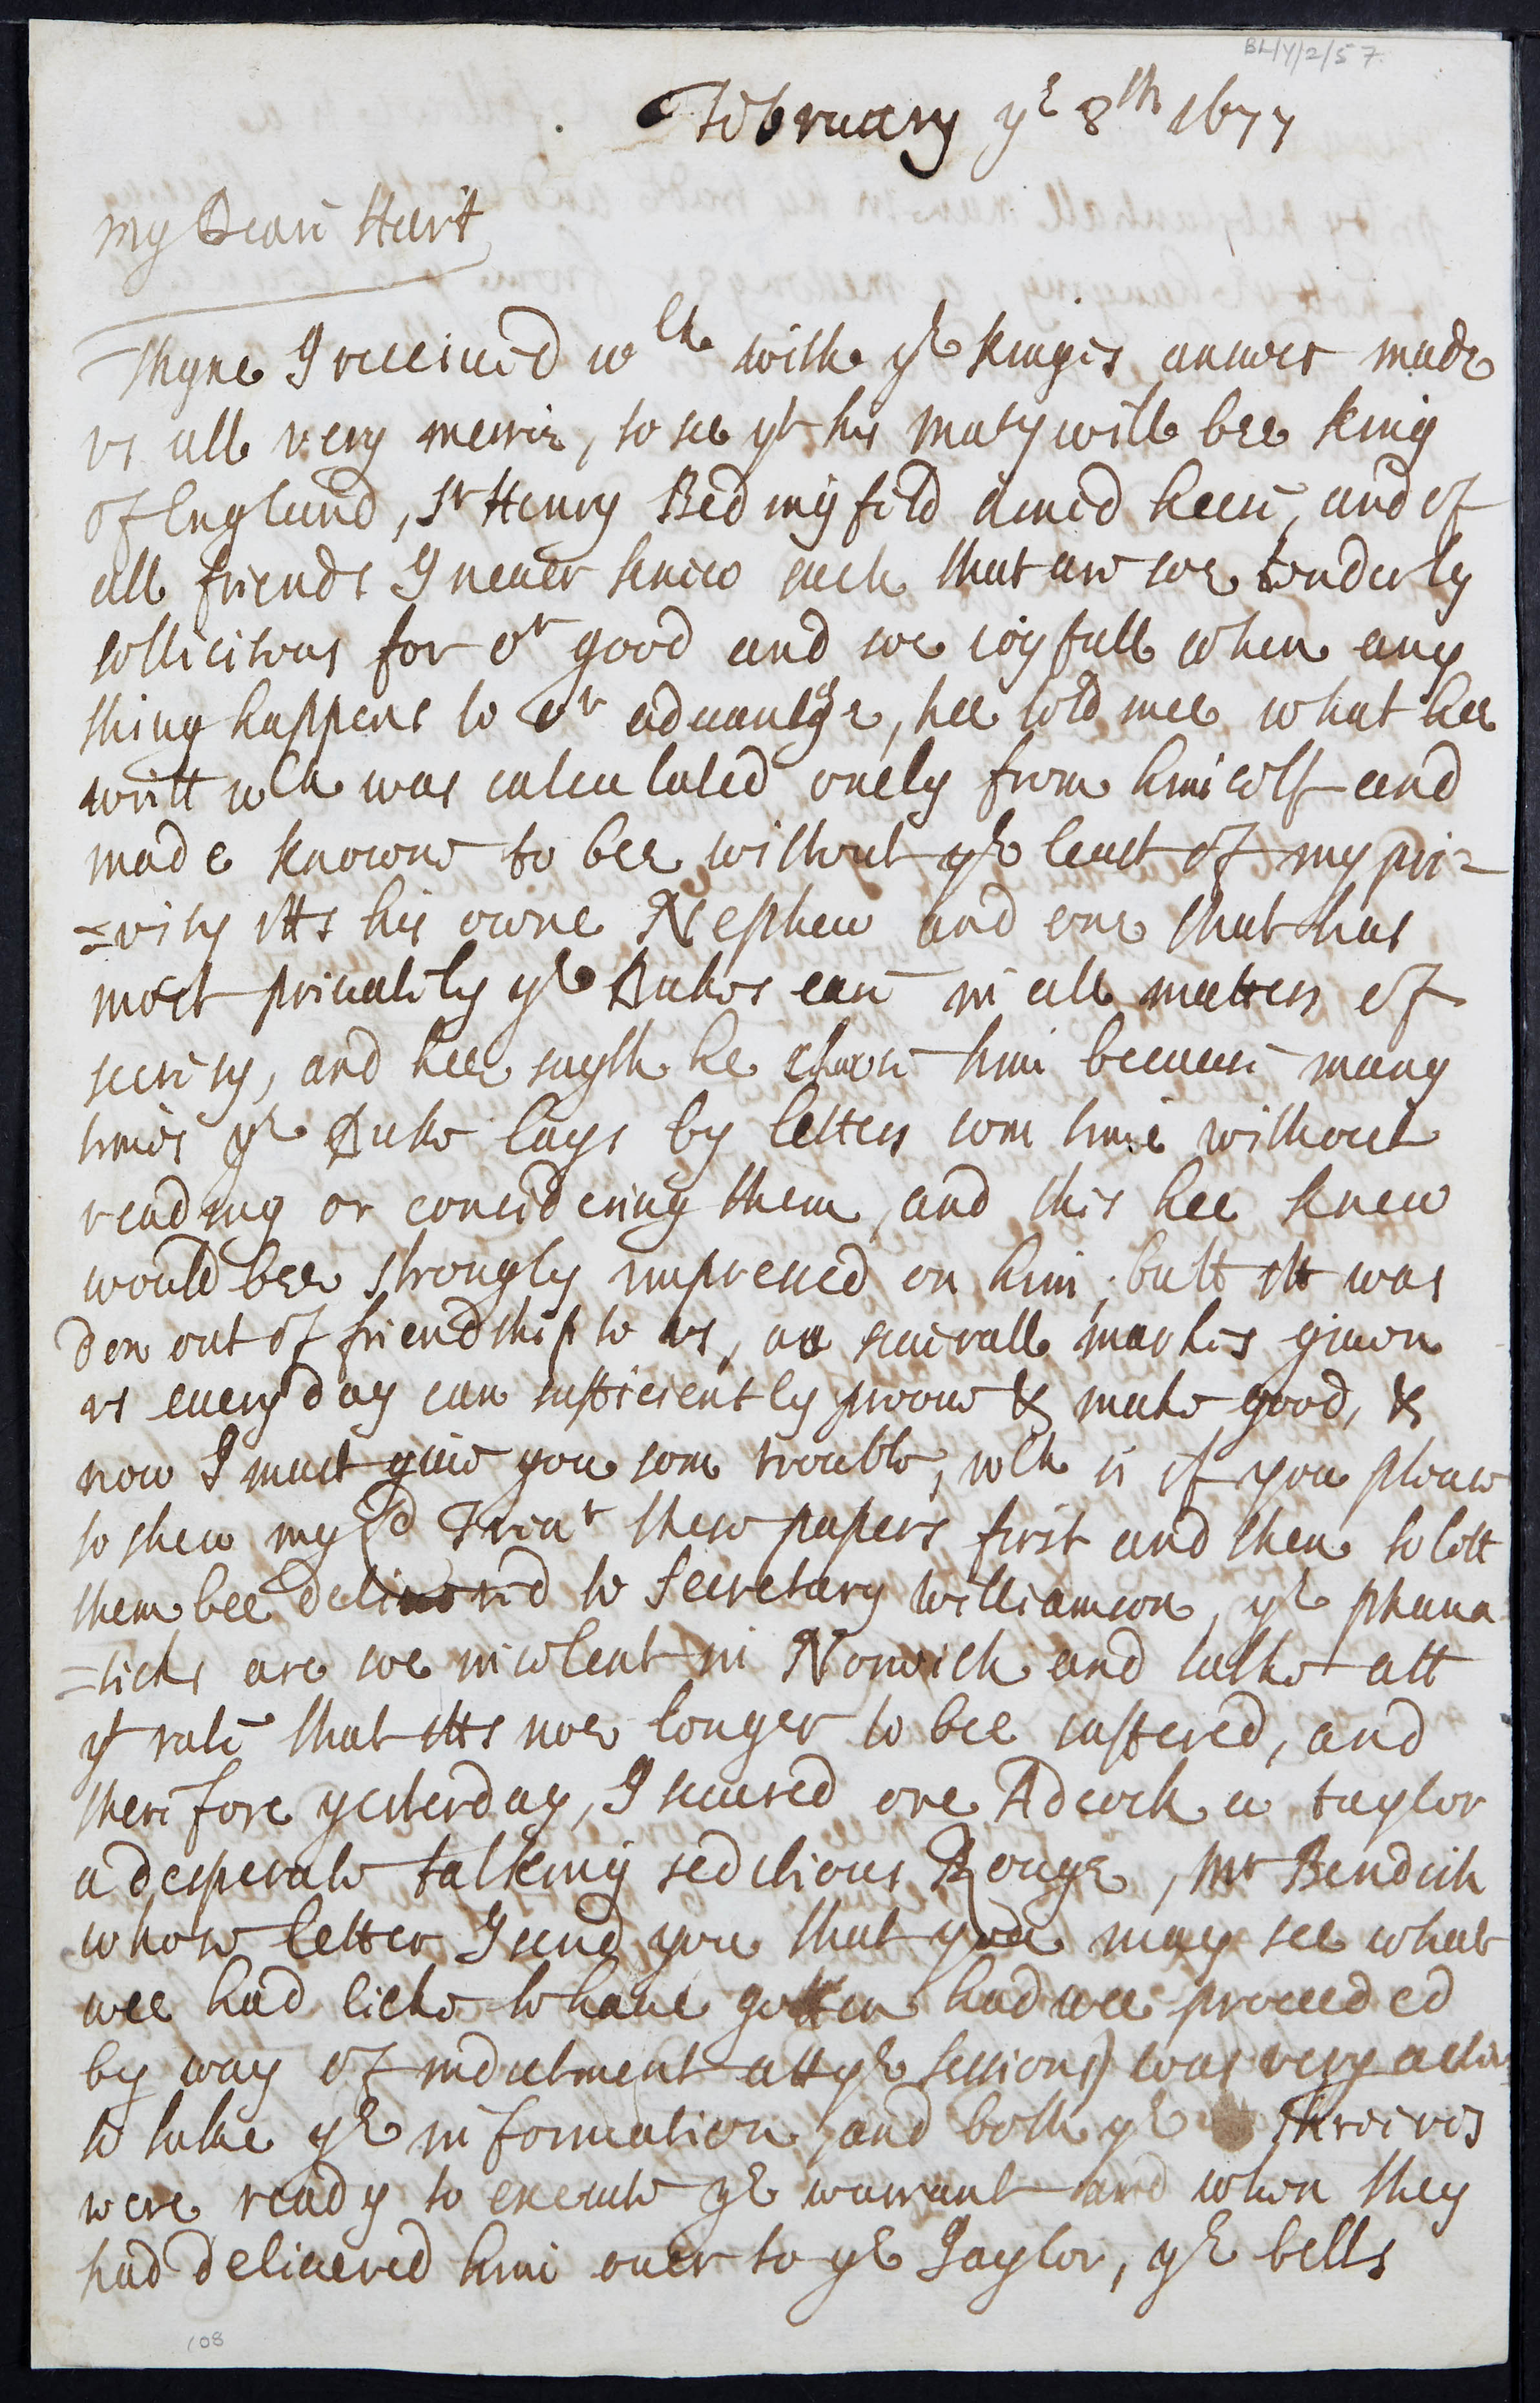 BL/Y/2/57
February ye 8th 1677
my Deare Hart
Thyne I received wch with ye kinges answer made
vs all very merrie, to see yt his maty will bee king
of England, Sr Henry Bedingfeld dined heere, and of
all friends I never knew such that are soe tenderly
sollicitous for or good and soe ioyfull when any
thing happens to or advantage, hee told mee what hee
writt wch was calculated onely from himself and
made knowne to bee without ye least of my pri=
=vity itts his owne Nephew and one that has
most privatily ye Dukes eare in all matters of
secrisy, and hee sayth he chose him because many
times ye Duke lays by letters som time without
reading or considering them, and this hee knew
would bee strongly impressed on him, butt itt was
don out of friendship to vs, as severall markes given
vs every day can sufficiently proove & make good, &
now I must give you som trouble, wch is if you please
to shew my Ld Trear these papers first and then to lett
them bee delivered to Secretary Williamson, ye phana
=ticks are soe insolent in Norwich and talke att
yt rate that itts noe longer to bee suffered, and
therefore yesterday, I secured one Adcock a taylor
a desperate talking seditious Rouge, Mr Bendish
whose letter I send you that you may see what
wee had licke to have gotten had wee proceeded
by way of indictment att ye sessions) was very active
to take ye information, and both ye Shreives
were ready to execute ye warrant and when they
had delivered him over to ye Jaylor, ye bells
108